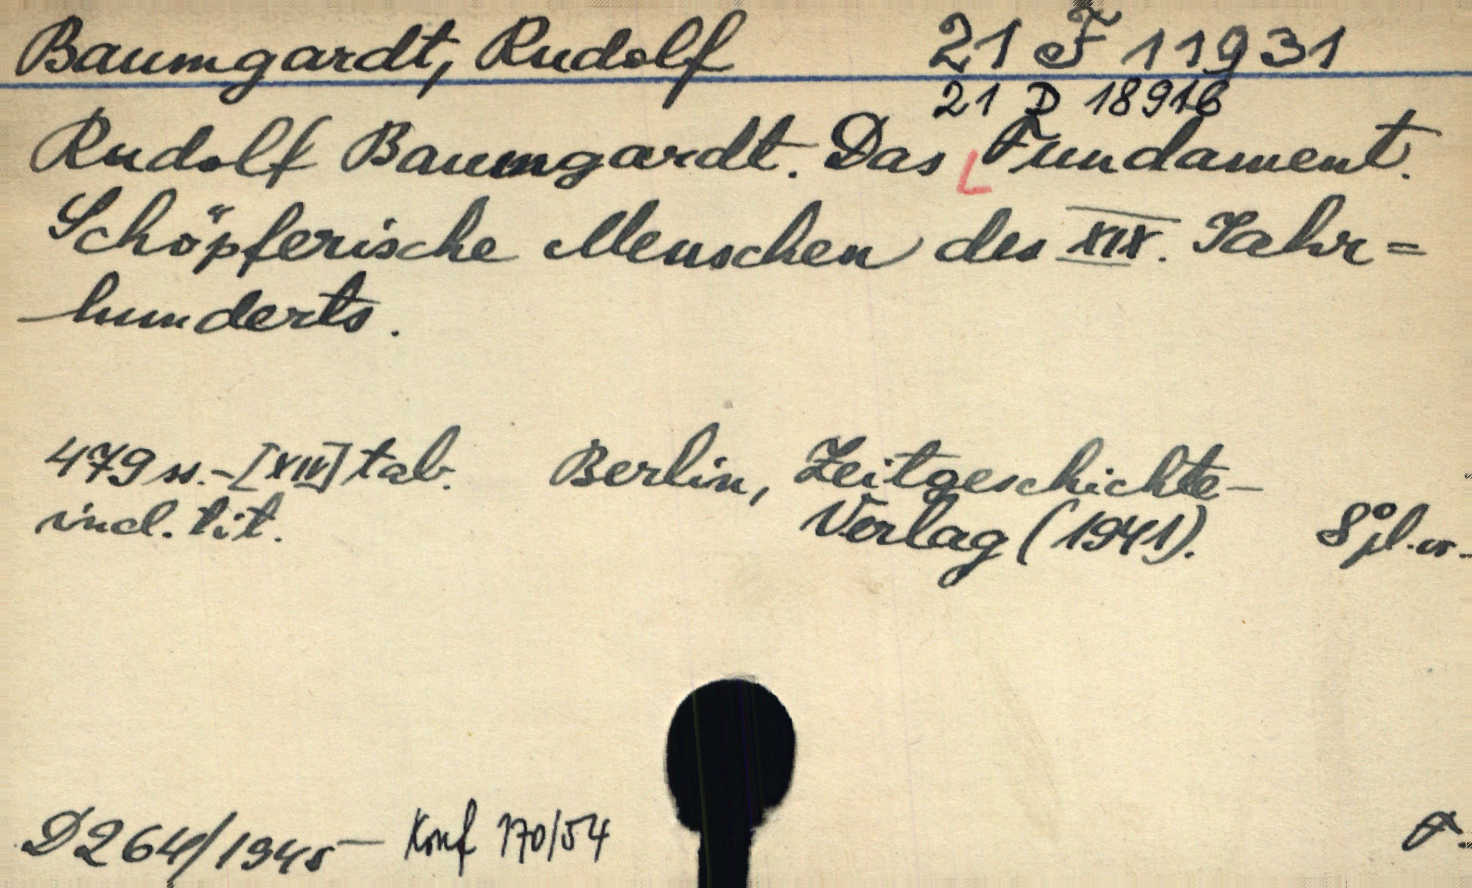 Baumgardt, Rudolf 21 F 11931
21 D 18916
Rudolf Baumgardt. Das Fundament.
Schöpferische Menschen des XIX. Jahr=
hunderts.
479 ss.-[XIV] tab. Berlin, Zeitgeschichte-
incl. tit. Verlag (1941). 8° pl. or.
D 264/1945 - Konf 170/54